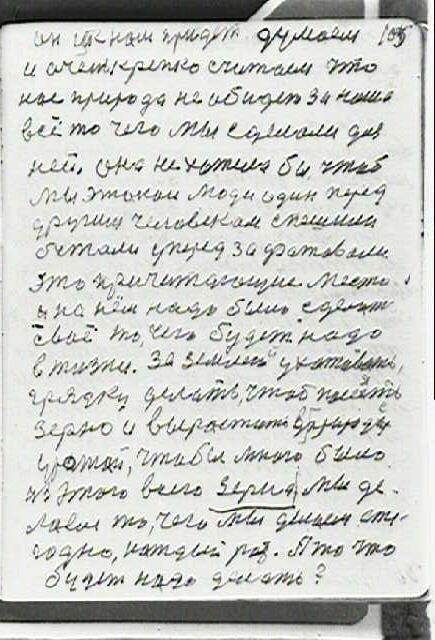 он к нам придёт. думаем 105
и очень крепко считаем что
нас природа не обидет за наше
всё то чего мы сделали для
ней. она не хотела бы, чтоб
мы этакои люди один перед
другим человеком спешили
бежали уперед захватовали
это причитающие место.
а на нём надо было сделать
своё то, чего будет надо
в жизни. За землёй ухаживать,
грядку делать, чтоб посеять
зерно и вырастить в природе
урожай, чтобы много было
из этого всего зерна, мы де-
лаем то, чего мы делаем еже-
годно, каждый раз. А то что
будет надо делать?